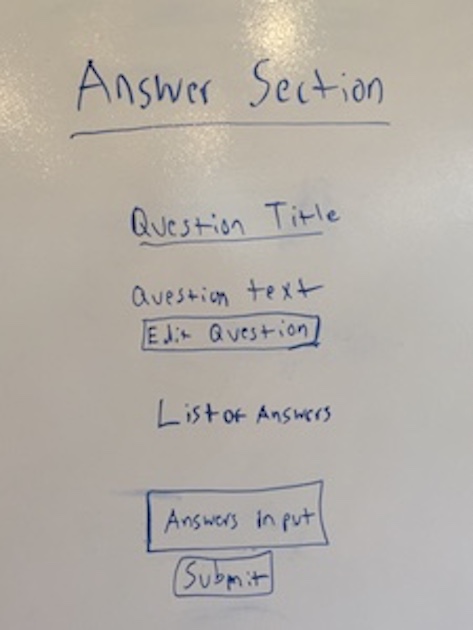 Answer Section
Question Title
Question text
Edit Question
List of Answers
Answers input
Submit